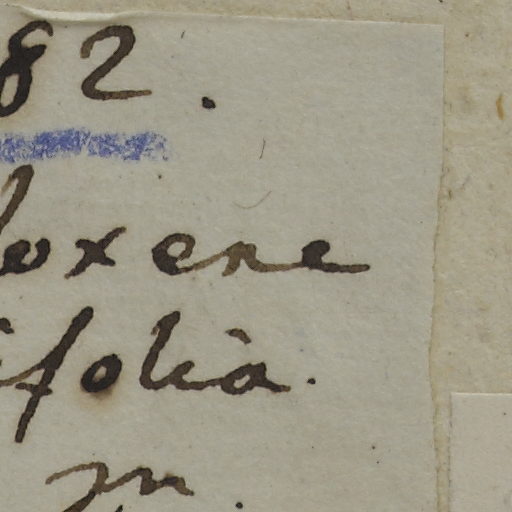 82.
loxene
ifolia.
m.